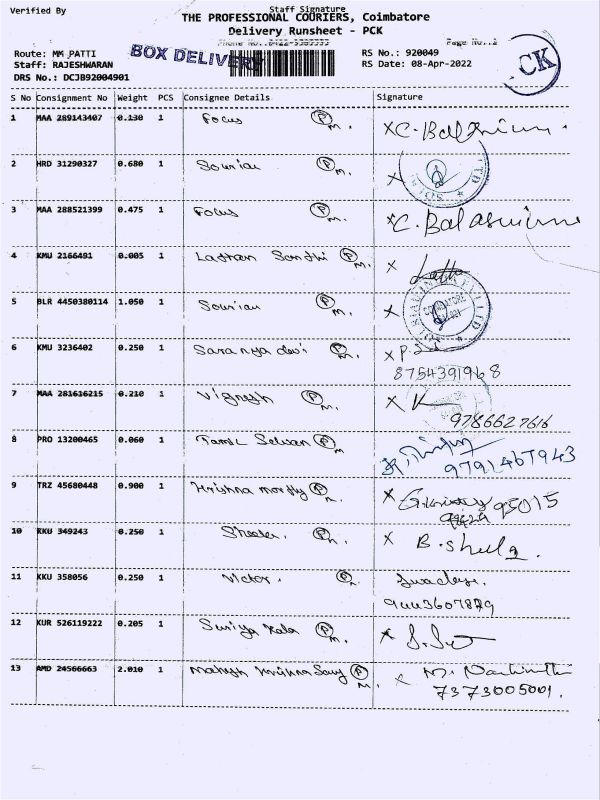 Verified By
Staff Signature
THE PROFESSIONAL COURIERS, Coimbatore
Delivery Runsheet - PCK
Page No.:2
Route: MM PATTI
BOX DELIVERY
RS No.: 920049
PCK
Staff: RAJESHWARAN
RS Date: 08-Apr-2022
DRS No.: DCJB92004901
S No Consignment No Weight PCS Consignee Details Signature
1 MAA 289143407 0.130 1 Focus P M.
2 HRD 31290327 0.680 1 P M.
3 MAA 288521399 0.475 1 Focus P M. C. Bala
4 KMU 2166491 0.005 1 P M.
5 BLR 4450380114 1.050 1 P M. COIMBATORE
6 KMU 3236402 0.250 1 Saranya devi P M.
8754391968
7 MAA 281616215 0.210 1 Vignesh P M.
9786627616
8 PRO 13200465 0.060 1 Tamil Selvan P M.
9791467943
9 TRZ 45680448 0.900 1 Krishna P 95015
10 KKU 349243 0.250 1 B. Sheela
11 KKU 358056 0.250 1 Victor.
9443607879
12 KUR 526119222 0.205 1 Suriya Kala P M.
13 AMD 24566663 2.010 1 Mahesh Krishna P M. M.
7373005001.